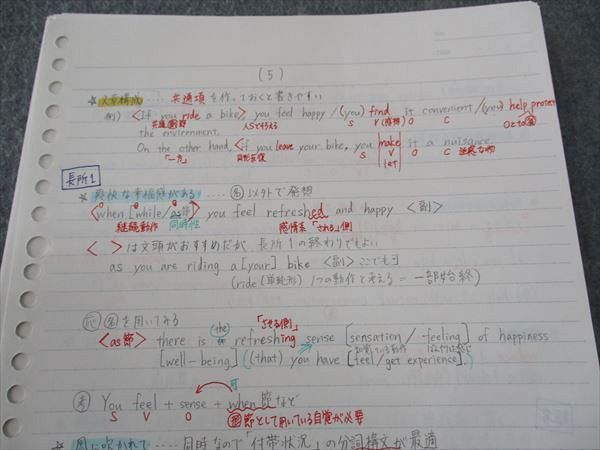 (5)
☆ 文章構成 ････ 共通項を作っておくと書きやすい
例) <If you ride a bike>, you feel happy / (you) find it convenient / (you) help protect
S V O C
the environment.
On the other hand, <if you leave your bike, you make it a nuisance.
「一方」 S V O C 迷惑な物
let
長所1
☆ 爽快な幸福感がある ････ 名 以外で発想
<when [while / as節]> you feel refreshed and happy <副>
継続動作 同時性 感情系「される」側
< > は文頭がおすすめだが 長所1の終わりでもよい
as you are riding a [your] bike <副> ここでも可
(ride (単純形) 1つの動作と考える = 一部始終)
応 名 を用いてみる
(the) 「させる側」
<as節> there is a refreshing sense [sensation / feeling] of happiness
[well-being] ((that) you have [feel / get experience].)
可
考 You feel + sense + when節 など
S V O 節として用いている自覚が必要
☆ 風に吹かれて ････ 同時なので「付帯状況」の分詞構文が最適